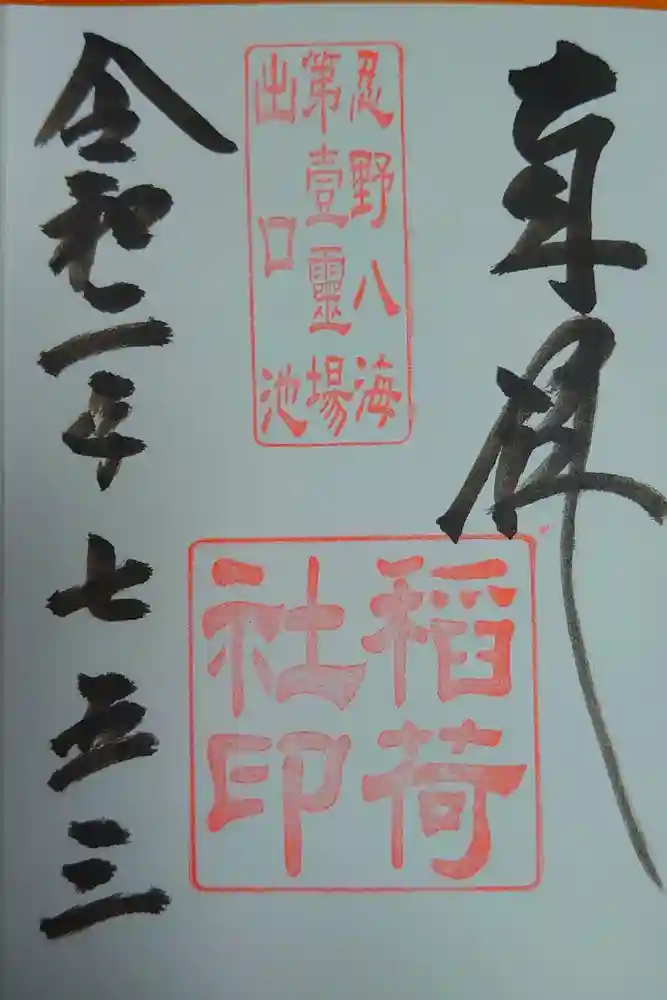 奉拝
忍野八海
第壹靈場
出口池
稲荷
社印
令和二年七五三